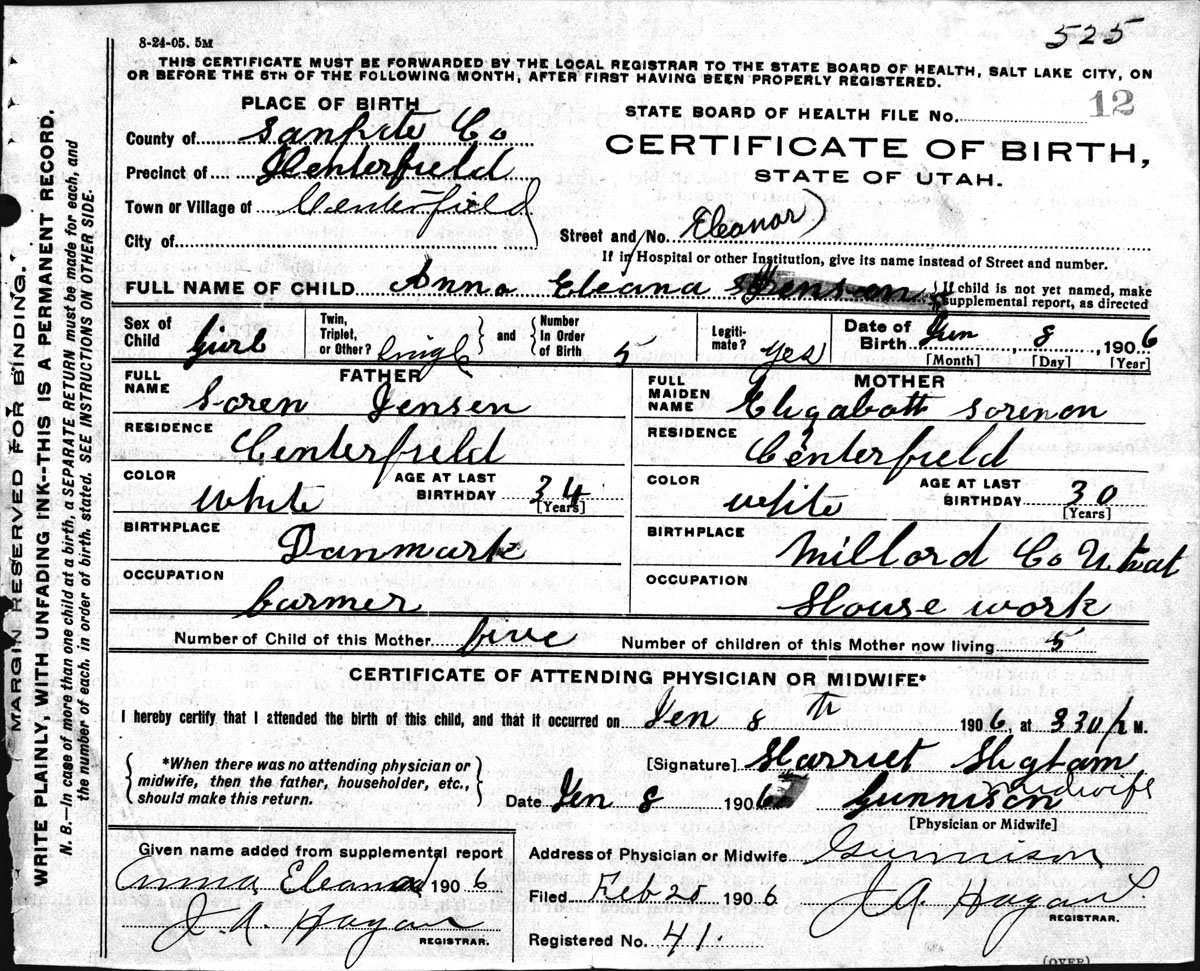 8-24-05. 5M
525
THIS CERTIFICATE MUST BE FORWARDED BY THE LOCAL REGISTRAR TO THE STATE BOARD OF HEALTH, SALT LAKE CITY, ON
OR BEFORE THE 5TH OF THE FOLLOWING MONTH, AFTER FIRST HAVING BEEN PROPERLY REGISTERED.
MARGIN RESERVED FOR BINDING.
WRITE PLAINLY, WITH UNFADING INK--THIS IS A PERMANENT RECORD.
N. B.—In case of more than one child at a birth, a SEPARATE RETURN must be made for each, and
the number of each, in order of birth, stated. SEE INSTRUCTIONS ON OTHER SIDE.
PLACE OF BIRTH
County of Sanpete Co
Precinct of Centerfield
Town or Village of Centerfield
City of
STATE BOARD OF HEALTH FILE No. 12
CERTIFICATE OF BIRTH,
STATE OF UTAH.
Street and No. Eleanor)
If in Hospital or other Institution, give its name instead of Street and number.
FULL NAME OF CHILD Anna Eleana
{If child is not yet named, make
supplemental report, as directed
Sex of Child Girl
Twin, Triplet, or Other? singl
and
Number In Order of Birth 5
Legitimate? yes
Date of Birth Jen 8, 1906
[Month] [Day] [Year]
FATHER
FULL NAME Soren Jensen
RESIDENCE Centerfield
COLOR White
AGE AT LAST BIRTHDAY 34 [Years]
BIRTHPLACE Danmark
OCCUPATION farmer
MOTHER
FULL MAIDEN NAME Elizabatt Sorenon
RESIDENCE Centerfield
COLOR white
AGE AT LAST BIRTHDAY 30 [Years]
BIRTHPLACE Millord Co Utat
OCCUPATION House work
Number of Child of this Mother five
Number of children of this Mother now living 5
CERTIFICATE OF ATTENDING PHYSICIAN OR MIDWIFE*
I hereby certify that I attended the birth of this child, and that it occurred on Jen 8th 1906, at 330 P M.
{*When there was no attending physician or
midwife, then the father, householder, etc.,
should make this return.}
[Signature] Harriet
Date Jen 8 1906 Gunnison midwife
[Physician or Midwife]
Given name added from supplemental report
Anna Eleanor 1906
J. A. Hagan
REGISTRAR.
Address of Physician or Midwife Gunnison
Filed Feb 25 1906 J. A. Hagan.
REGISTRAR.
Registered No. 41.
(OVER)